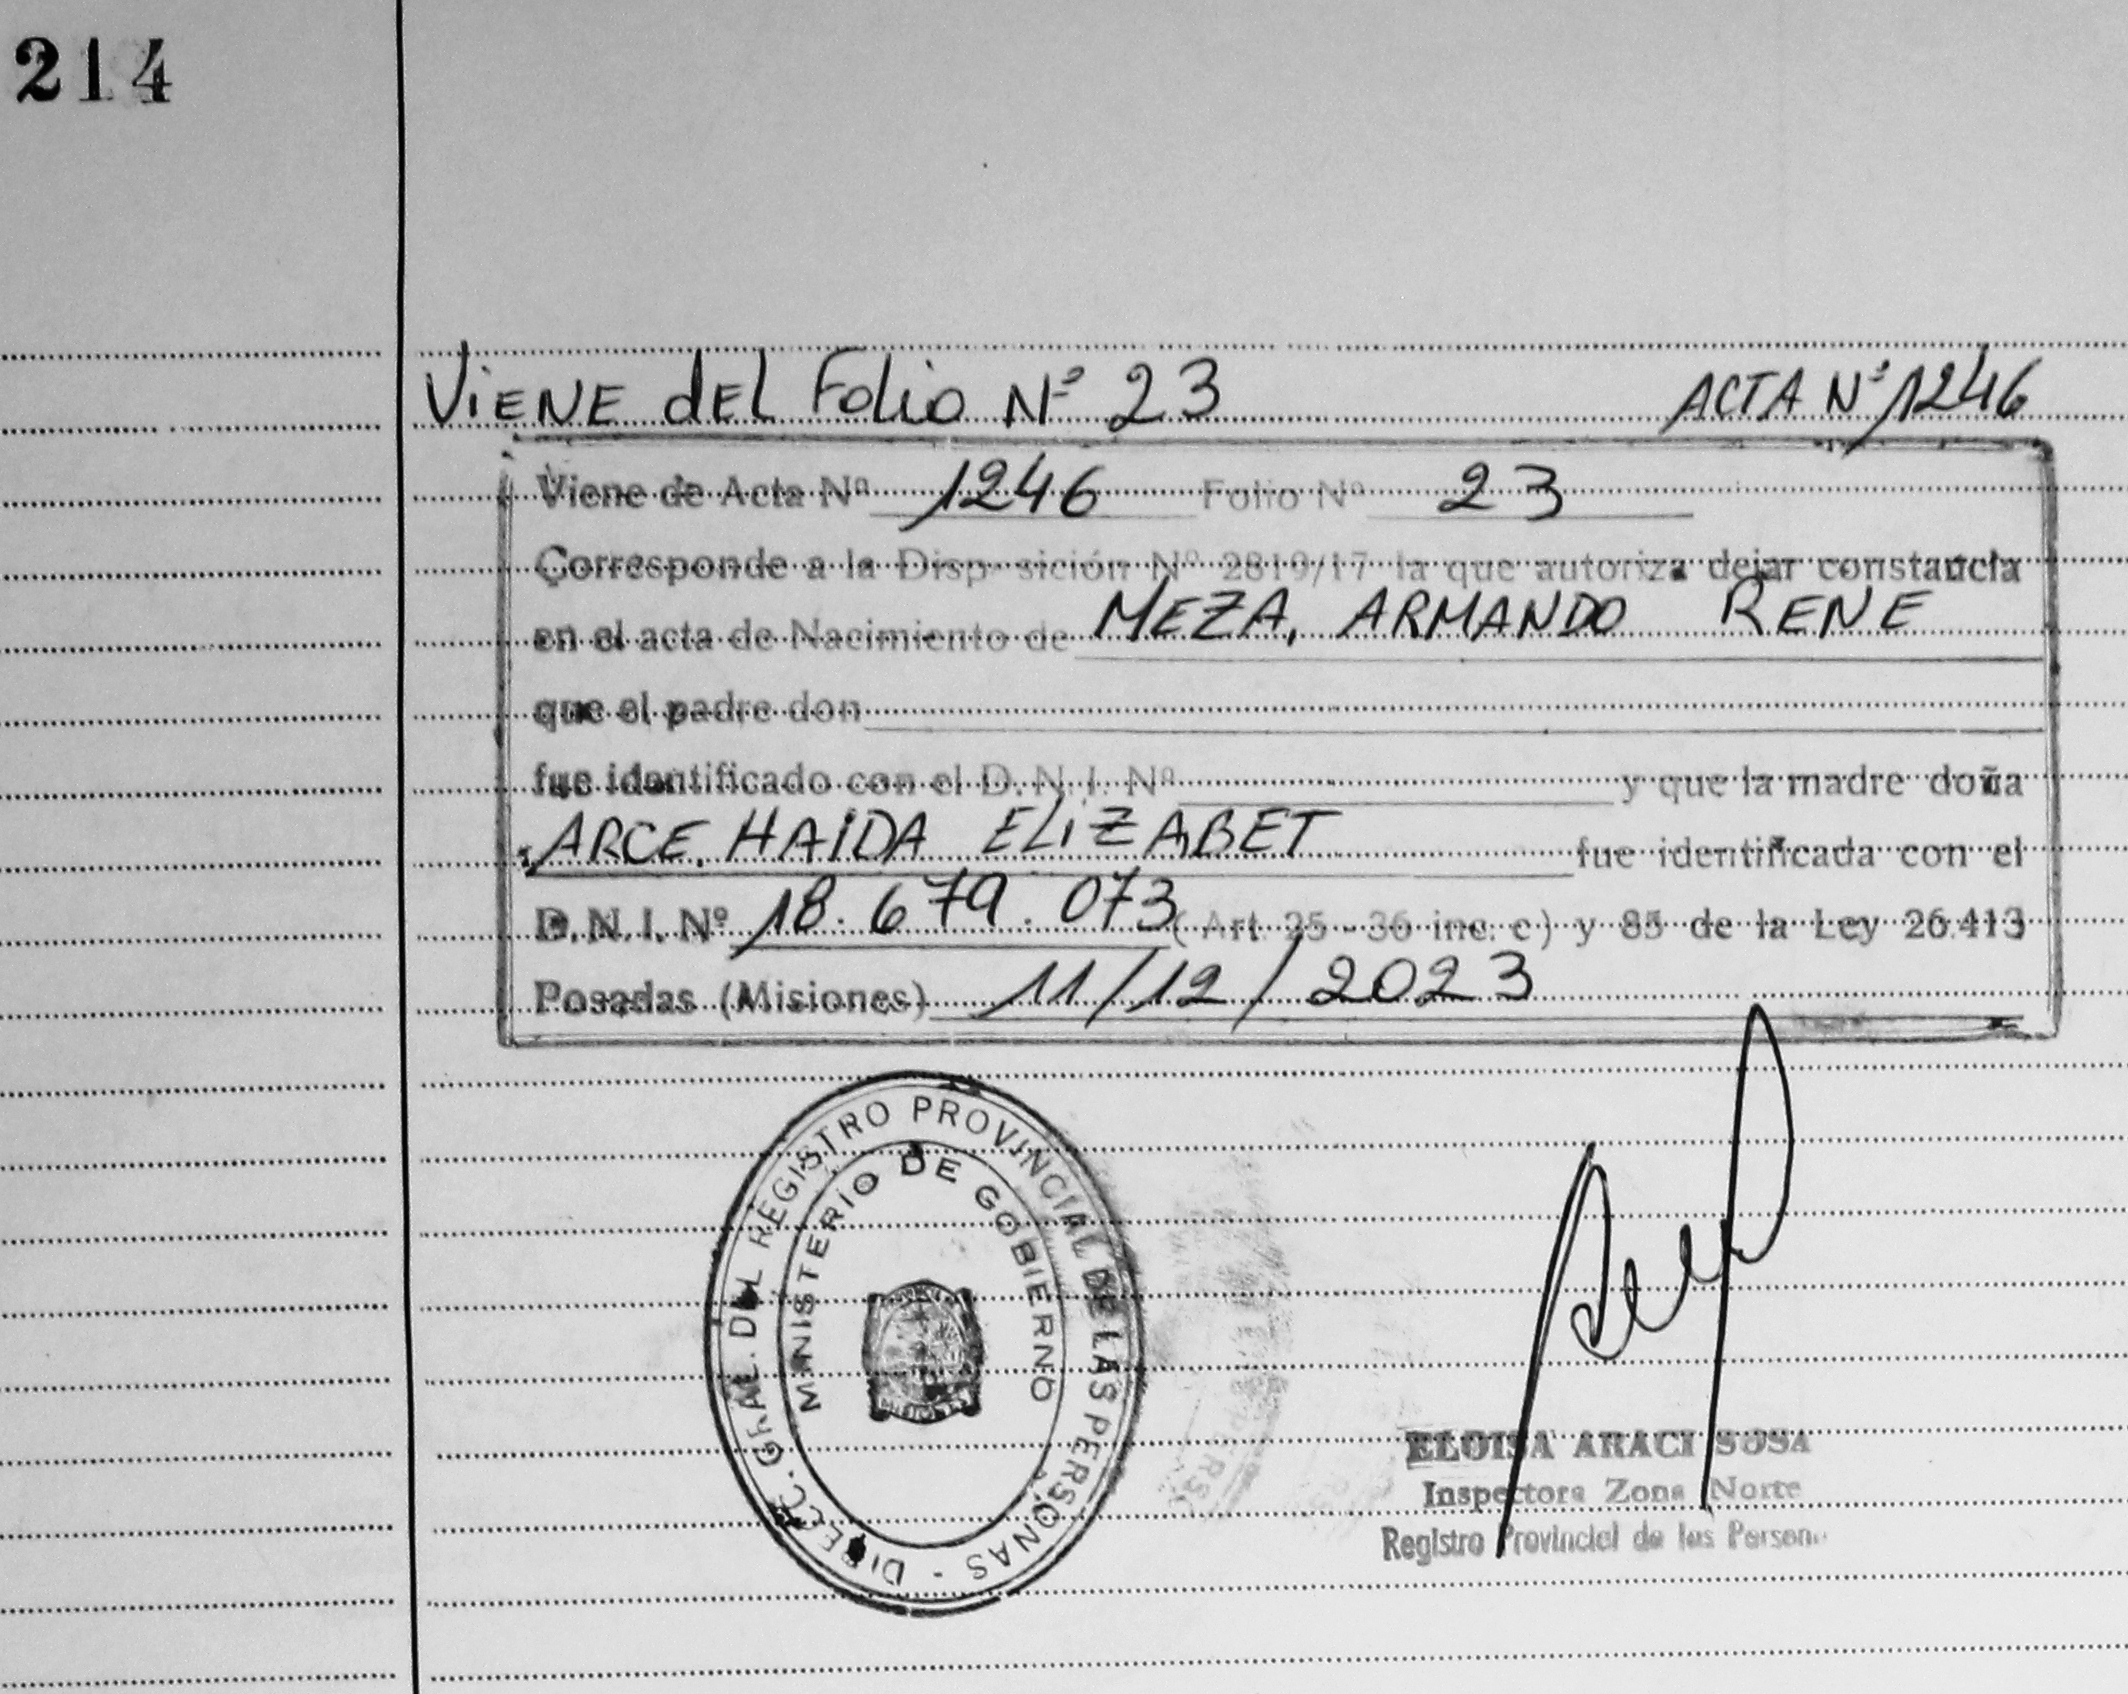 214
ViENE dEL Folio Nº 23 ACTA Nº 1246
Viene de Acta Nº 1246 Folio Nº 23
Corresponde a la Disp sición Nº 2819/17 la que autoriza dejar constancia
en el acta de Nacimiento de MEZA, ARMANDO RENE
que el padre don
fue identificado con el D. N. I. Nº y que la madre doña
ARCE, HAIDA ELIZABET fue identificada con el
D. N. I. Nº 18.679.073 (Art. 35 - 36 inc. c) y 85 de la Ley 26.413
Posadas (Misiones) 11/12/2023
DIREC. GRAL. DEL REGISTRO PROVINCIAL DE LAS PERSONAS -
MINISTERIO DE GOBIERNO
ELOISA ARACI SOSA
Inspectora Zona Norte
Registro Provincial de las Person